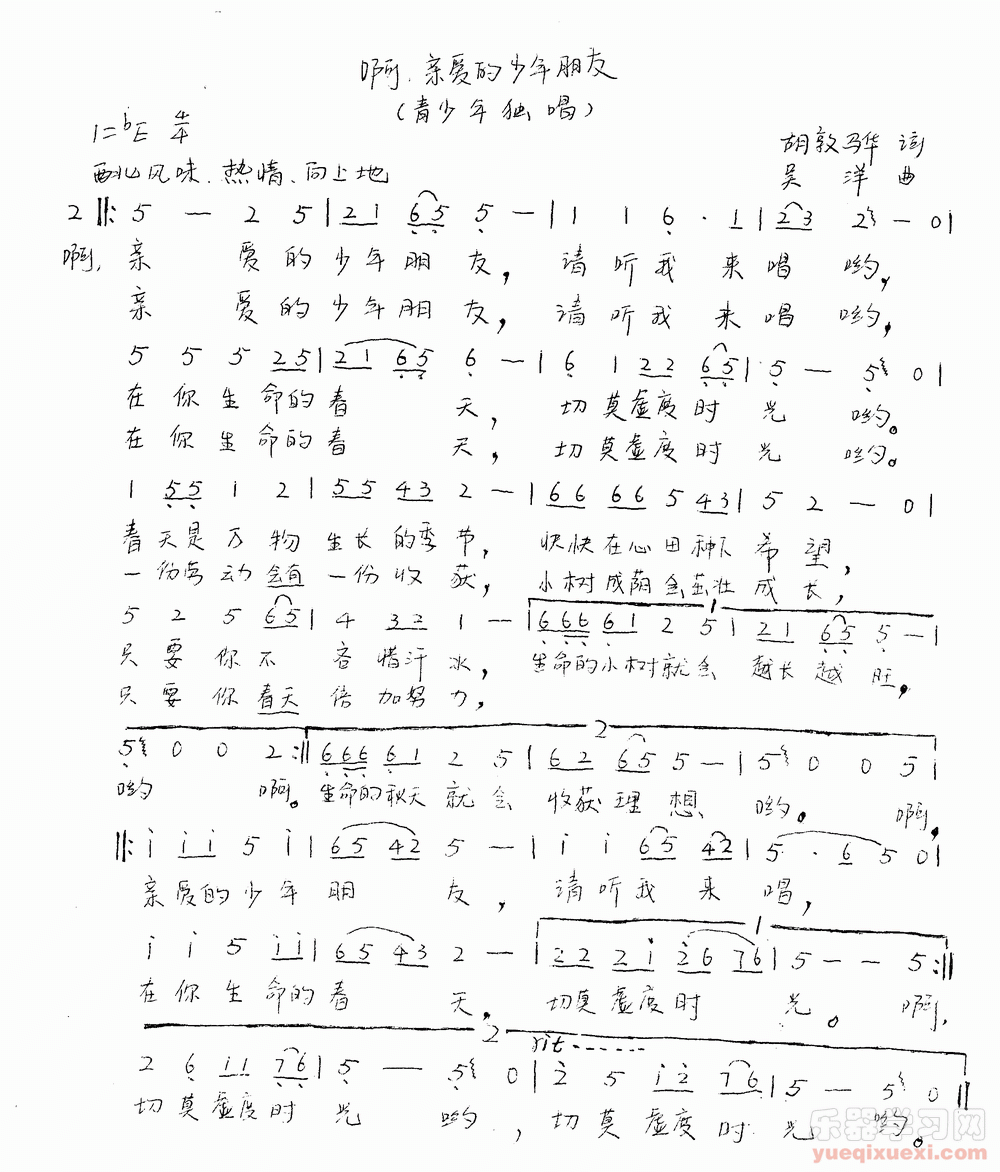 啊,亲爱的少年朋友
(青少年独唱)
1=bE 4/4
胡敦骅 词
西北风味、热情、向上地
吴 洋 曲
2 ‖: 5 — 2 5 | 21 65 5 — | 1 1 6 · 1 | 23 2 — 0 |
啊, 亲 爱的少年朋 友, 请听我来唱 哟,
亲 爱的少年朋 友, 请听我来唱 哟,
5 5 5 25 | 21 65 6 — | 6 1 22 65 | 5 — 5 0 |
在你生命的春 天, 切莫虚度时光 哟。
在你生命的春 天, 切莫虚度时光 哟。
1 55 1 2 | 55 43 2 — | 66 66 5 43 | 5 2 — 0 |
春天是万物生长的季节, 快快在心田种下希望,
一份劳动会有一份收获, 小树成荫会茁壮成长,
1
5 2 5 65 | 4 32 1 — | 666 61 2 5 | 21 65 5 — |
只要你不吝惜汗水, 生命的小树就会越长越旺,
只要你春天倍加努力,
2
5 0 0 2 :‖ 666 61 2 5 | 62 65 5 — | 5 0 0 5 |
哟 啊。生命的秋天就会收获理想、哟。啊,
‖: i ii 5 i | 65 42 5 — | i i 65 42 | 5 · 6 5 0 |
亲爱的少年朋 友, 请听我来唱,
1
i i 5 ii | 65 43 2 — | 22 2i 26 76 | 5 — — 5 :‖
在你生命的春 天, 切莫虚度时 光。 啊,
2
rit......
2 6 11 76 | 5 — 5 0 | 2 5 i2 76 | 5 — 5 0 ‖
切莫虚度时光 哟, 切莫虚度时光 哟。
乐器学习网
yueqixuexi.com